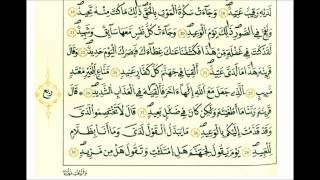 لَدَيْهِ رَقِيبٌ عَتِيدٌ ١٨ وَجَآءَتْ سَكْرَةُ ٱلْمَوْتِ بِٱلْحَقِّ ذَٰلِكَ مَا كُنتَ مِنْهُ تَحِيدُ ١٩
وَنُفِخَ فِى ٱلصُّورِ ذَٰلِكَ يَوْمُ ٱلْوَعِيدِ ٢٠ وَجَآءَتْ كُلُّ نَفْسٍ مَّعَهَا سَآئِقٌ وَشَهِيدٌ ٢١
لَّقَدْ كُنتَ فِى غَفْلَةٍ مِّنْ هَٰذَا فَكَشَفْنَا عَنكَ غِطَآءَكَ فَبَصَرُكَ ٱلْيَوْمَ حَدِيدٌ ٢٢ وَقَالَ
قَرِينُهُۥ هَٰذَا مَا لَدَىَّ عَتِيدٌ ٢٣ أَلْقِيَا فِى جَهَنَّمَ كُلَّ كَفَّارٍ عَنِيدٍ ٢٤ مَّنَّاعٍ لِّلْخَيْرِ مُعْتَدٍ
مُّرِيبٍ ٢٥ ٱلَّذِى جَعَلَ مَعَ ٱللَّهِ إِلَٰهًا ءَاخَرَ فَأَلْقِيَاهُ فِى ٱلْعَذَابِ ٱلشَّدِيدِ ٢٦ قَالَ
قَرِينُهُۥ رَبَّنَا مَآ أَطْغَيْتُهُۥ وَلَٰكِن كَانَ فِى ضَلَٰلٍۭ بَعِيدٍ ٢٧ قَالَ لَا تَخْتَصِمُوا۟ لَدَىَّ
وَقَدْ قَدَّمْتُ إِلَيْكُم بِٱلْوَعِيدِ ٢٨ مَا يُبَدَّلُ ٱلْقَوْلُ لَدَىَّ وَمَآ أَنَا۠ بِظَلَّٰمٍ
لِّلْعَبِيدِ ٢٩ يَوْمَ نَقُولُ لِجَهَنَّمَ هَلِ ٱمْتَلَأْتِ وَتَقُولُ هَلْ مِن مَّزِيدٍ ٣٠
ربع